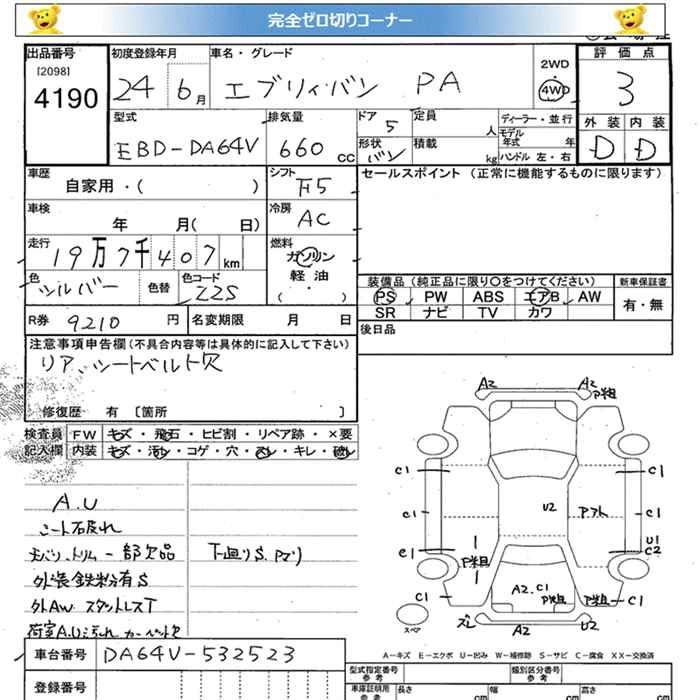 完全ゼロ切りコーナー
出品番号 初度登録年月 車名・グレード 評価点
[2098]
4190 24 6月 エブリィバン PA 2WD 4WD 3
型式 排気量 ドア 5 定員 人 ディーラー・並行 外装 内装
EBD-DA64V 660 CC 形状 バン 積載 kg モデル年式 年 ハンドル 左・右 D D
車歴 シフト セールスポイント (正常に機能するものに限ります)
自家用・( ) F5
車検 冷房
年 月( 日) AC
走行 燃料
19万7千407km ガソリン
軽油
( ・ )
色 色コード
シルバー 色替 Z2S
装備品 (純正品に限り〇をつけてください) 新車保証書
PS PW ABS エアB AW 有・無
SR ナビ TV カワ
R券 9210円 名変期限 月 日
後日品
注意事項申告欄 (不具合内容等は具体的に記入して下さい)
リア、シートベルト欠
修復歴 有 [箇所 ]
検査員 FW キズ・飛石・ヒビ割・リペア跡・×要
記入欄 内装 キズ・汚れ・コゲ・穴・スレ・キレ・破れ
A.U
シート破れ
内バリ、トリム一部欠品 下廻りS、Pアリ
外装鉄粉有S
外AW スタットレスT
荷室A.U汚れ カーペット欠
A2 A2 P粗
C1 C1
C1 U2 Pフト C1
C1 U1 C2
P粗
C1 A2.C1 P粗 P粗 C1
スペア ズレ A2 U2
A-キズ E-エクボ U-凹み W-補修跡 S-サビ C-腐食 XX-交換済
車台番号 DA64V-532523
登録番号
型式指定番号 類別区分番号
参考 参考
車庫証明用 長さ cm 幅 cm 高さ cm
参考